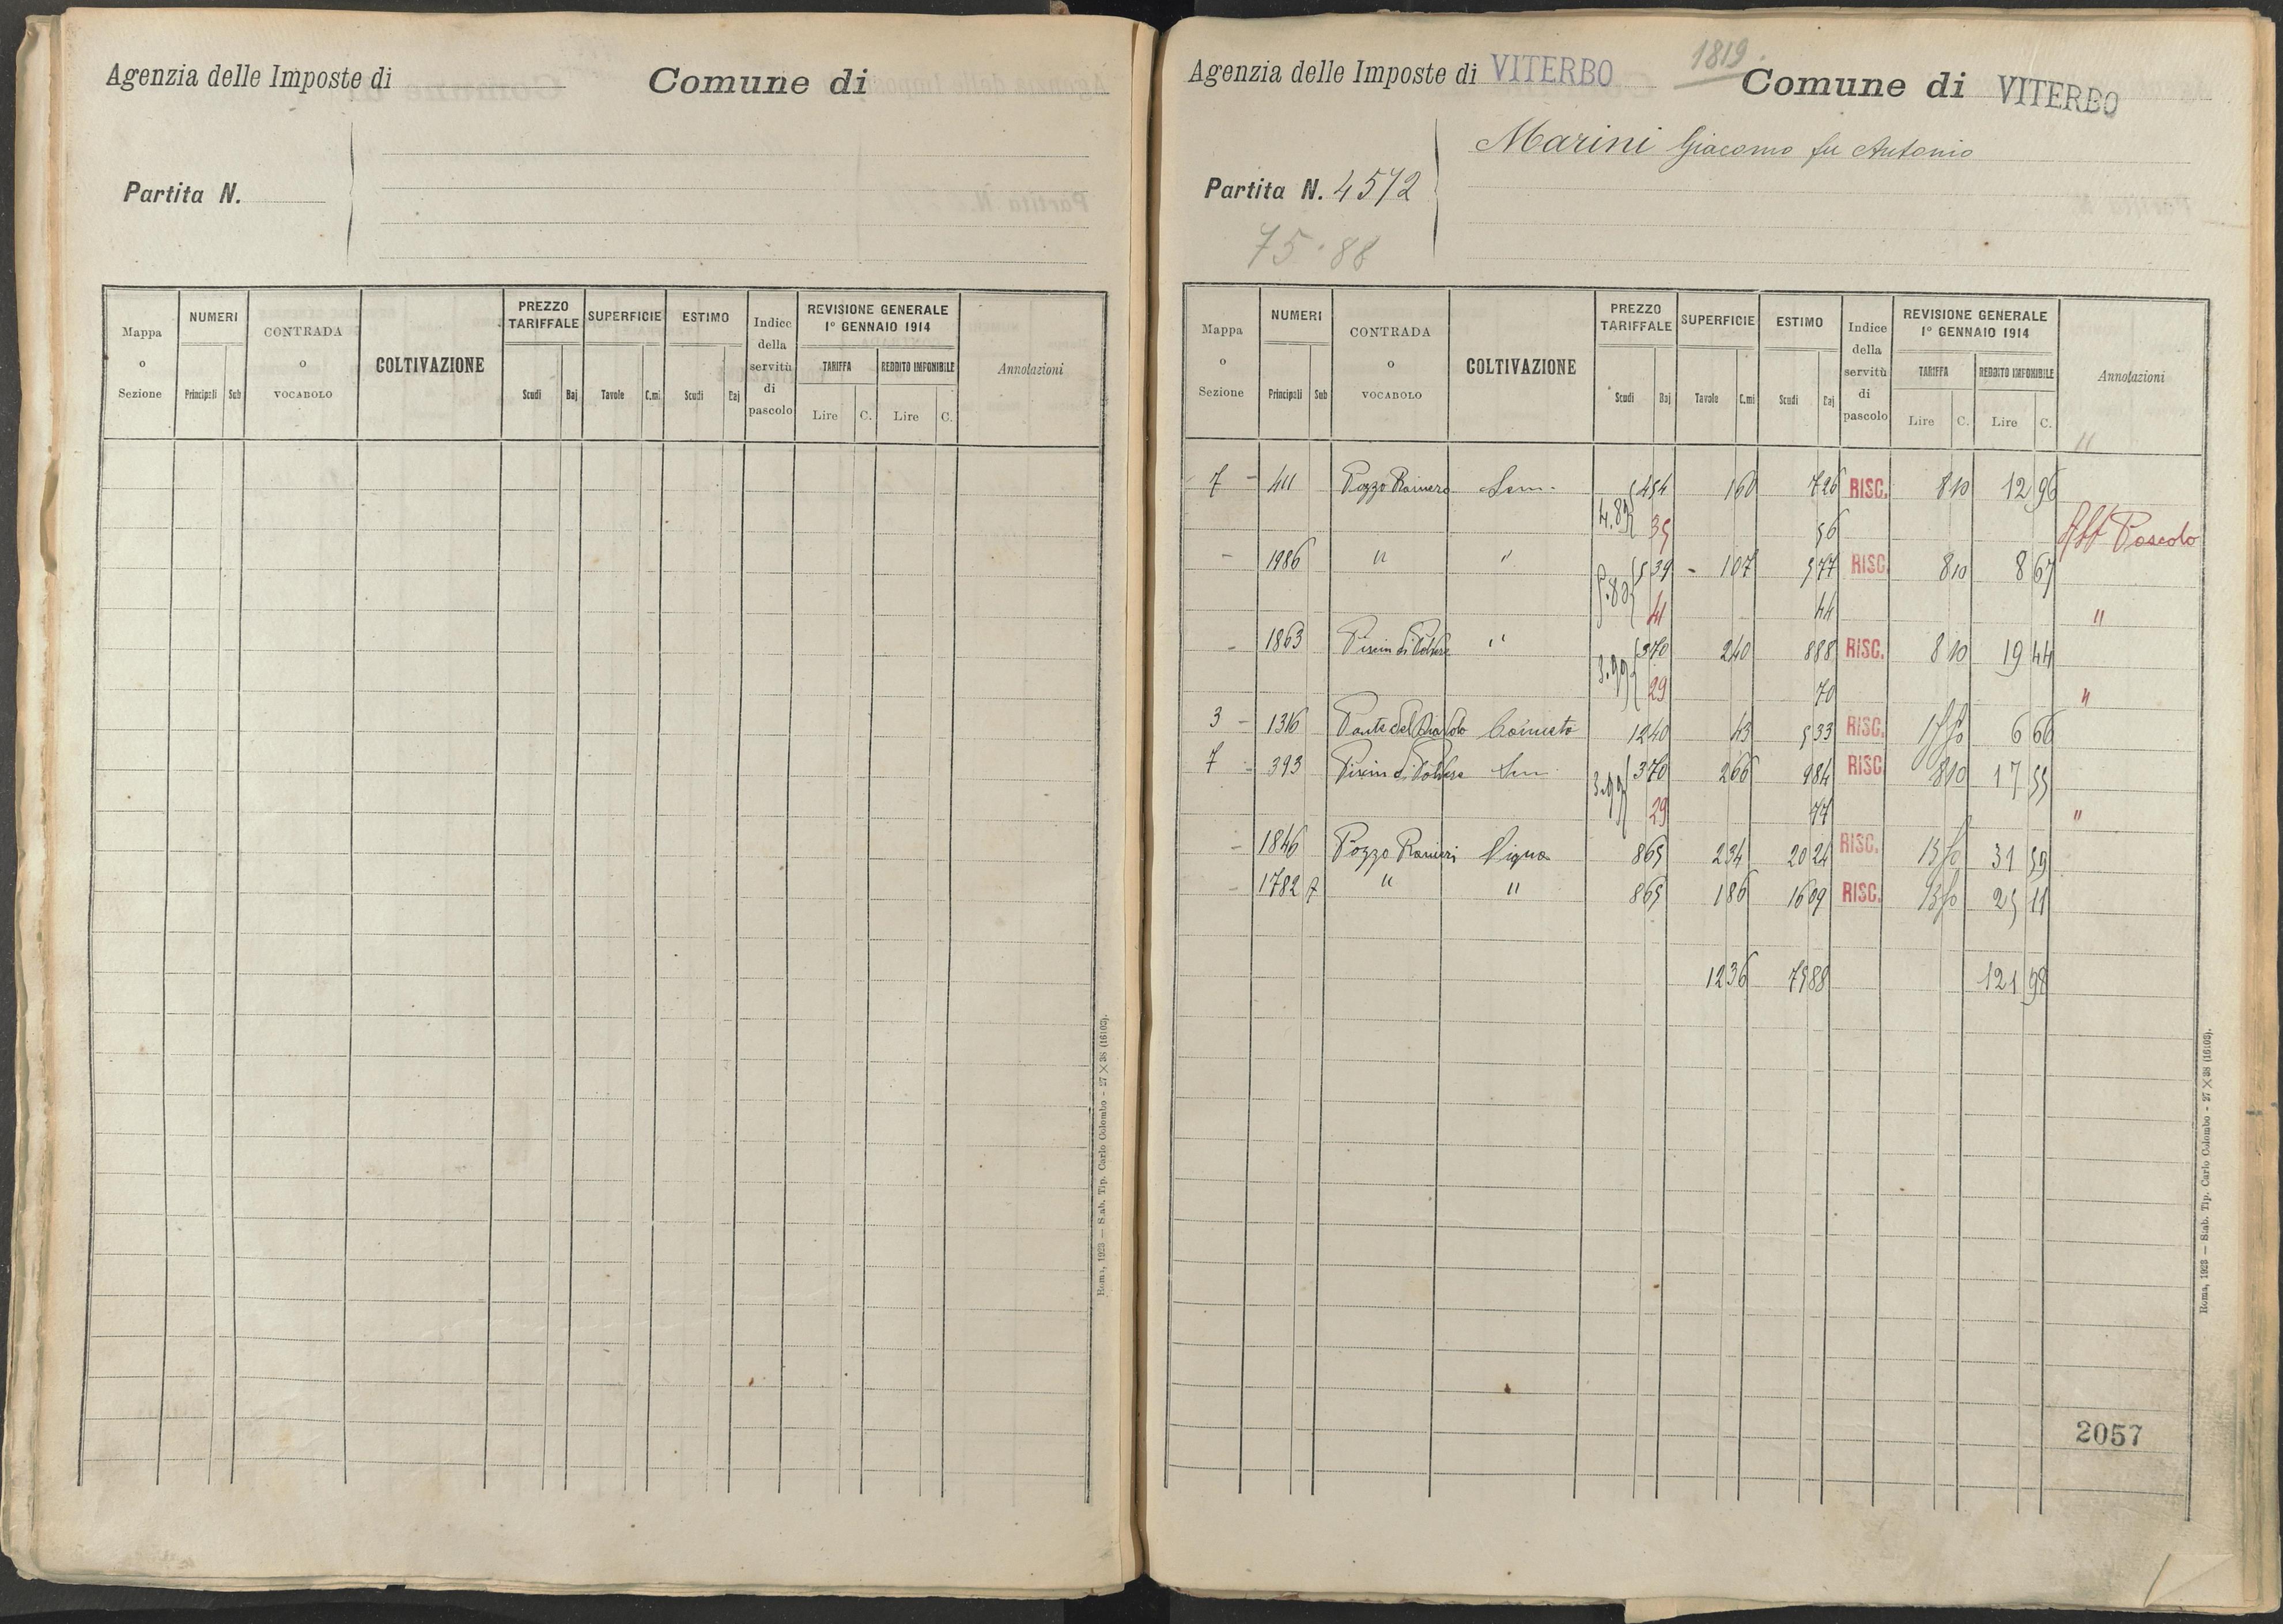 Agenzia delle Imposte di
Comune di
Partita N.
Mappa o Sezione
NUMERI
Principali Sub
CONTRADA o VOCABOLO
COLTIVAZIONE
PREZZO TARIFFALE
Scudi Baj
SUPERFICIE
Tavole C.mi
ESTIMO
Scudi Baj
Indice della servitù di pascolo
REVISIONE GENERALE
1° GENNAIO 1914
TARIFFA
Lire C.
REDDITO IMPONIBILE
Lire C.
Annotazioni
Roma, 1923 — Stab. Tip. Carlo Colombo - 27 × 38 (16103).
1819.
Agenzia delle Imposte di VITERBO
Comune di VITERBO
Marini Giacomo fu Antonio
Partita N. 4572
75.88
Mappa o Sezione
NUMERI
Principali Sub
CONTRADA o VOCABOLO
COLTIVAZIONE
PREZZO TARIFFALE
Scudi Baj
SUPERFICIE
Tavole C.mi
ESTIMO
Scudi Baj
Indice della servitù di pascolo
REVISIONE GENERALE
1° GENNAIO 1914
TARIFFA
Lire C.
REDDITO IMPONIBILE
Lire C.
Annotazioni
"
7 - 411 Pozzo Raniero Sem. 4 54 1 60 7 26 RISC. 8 10 12 96
4.89 35 56 Aff Pascolo
- 1986 " " 5 39 - 1 07 5 77 RISC. 8 10 8 67
5.80 41 44 "
- 1863 " 3 70 2 40 8 88 RISC. 8 10 19 44
3.99 29 70 "
3 - 1316 Ponte del Diavolo Canneto 12 40 43 5 33 RISC. 15 50 6 66
7 - 393 Sem. 3 70 2 66 9 84 RISC. 8 10 17 55
3.99 29 77 "
- 1846 Pozzo Ranieri Vigna 8 65 2 34 20 24 RISC. 13 50 31 59
- 1782 7 " " 8 65 1 86 16 09 RISC. 13 50 25 11
12 36 75 88 121 98
2057
Roma, 1923 — Stab. Tip. Carlo Colombo - 27 × 38 (16103).